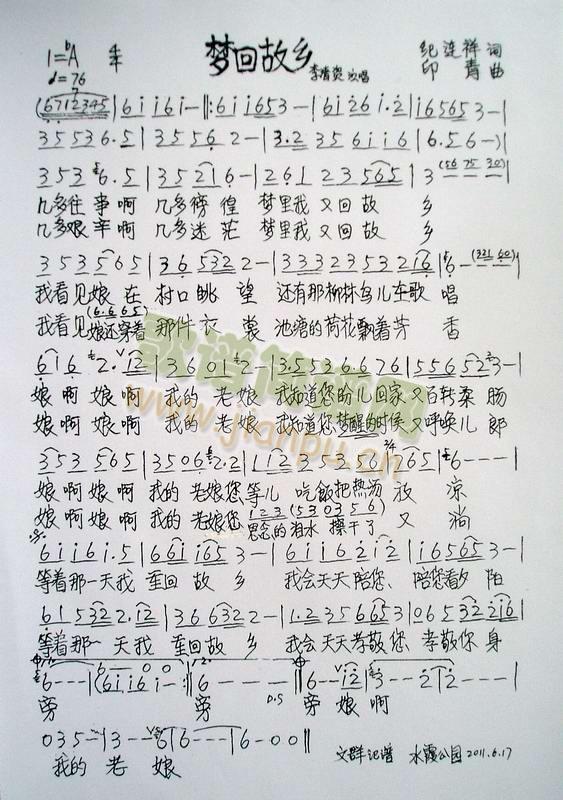 梦回故乡
1=bA 4/4
♩=76
李清贤演唱
纪连祥 词
印青 曲
(6712345|6iii6i-|:6iii653-|6i26i.2|i65653-|
35536.5|35562-|3.2356ii6|6.56-)|
3536.5|35216-|26123565|3(567530)|
几多往事啊 几多徬徨 梦里我又回故 乡
几多艰辛啊 几多迷茫 梦里我又回故 乡
353565|365322-|33323532216|6-(32160)|
我看见娘在 村口眺 望 还有那柳林鸟儿在歌 唱
(6.665)
我看见娘还穿着 那件衣 裳 池塘的荷花飘着芳 香
6162.12|36012-|3.5536676|5565523-|
娘啊娘 啊 我的老娘 我知道您盼儿回家又百转柔肠
娘啊娘 啊 我的老娘 我知道您梦醒的时候又呼唤儿郎
353565|35062.2|112353561|2/4 765|6---|
娘啊娘啊 我的老娘您等儿 吃饭把热汤 放 凉
123(530356)
娘啊娘啊 我的老娘您思念的泪水 擦干了 又 淌
6iii6i.5|66ii653-|6iii62i2|i65653-|
等着那一天我 重回故 乡 我会天天陪您、陪您看夕 阳
615322.12|366322-|1.2356653|065322216|
等着那一 天我 重回故 乡 我会天天孝敬您、孝敬你身
6---|(6iii6i-:|6---|D.S 6--12|3--2|2---|
旁 旁 旁 娘啊
035-|3--6|6---|6-00||
我的 老 娘
文群记谱 水霞公园 2011.6.17
歌谱简谱网
www.jianpu.cn